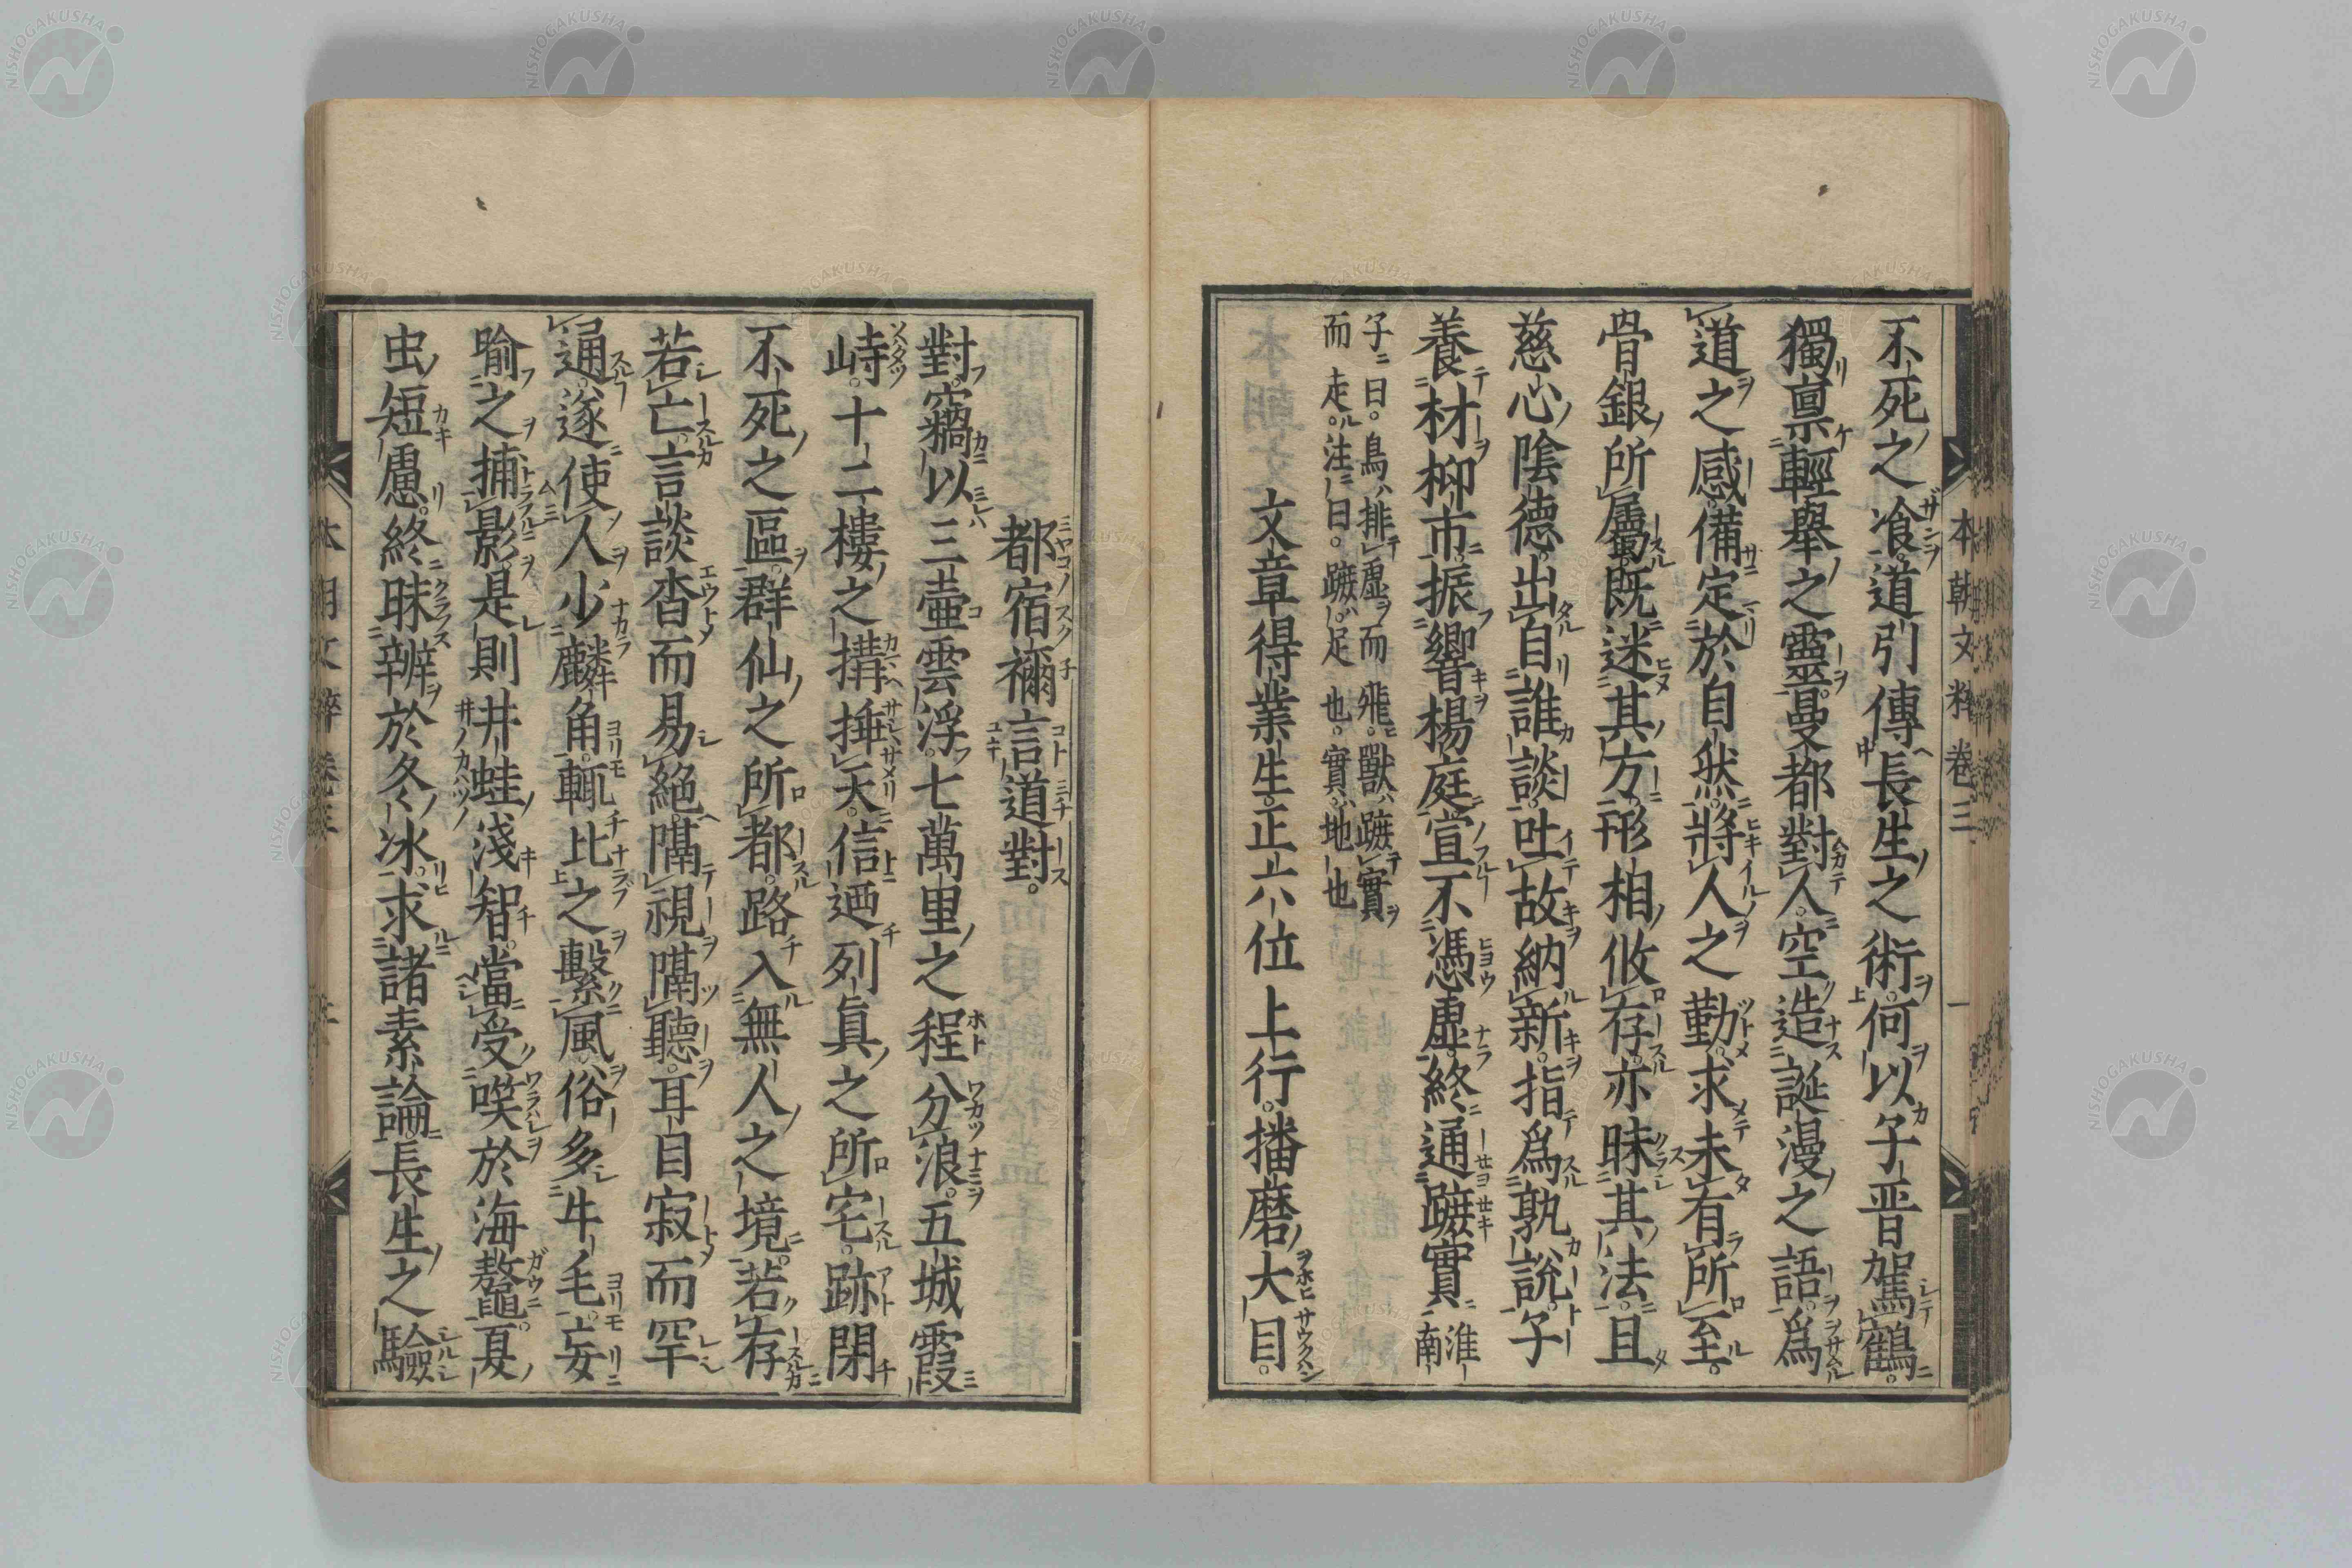 本朝文粹卷三
不死之飡。道引傳長生之術。何以子晋駕鶴。
獨禀輕擧之靈。曼都對人。空造誕漫之語。爲
道之感。備定於自然。將人之勤。求未有所至。
骨銀所屬。既迷其方。形相攸存。亦昧其法。且
慈心陰德。出自誰談。吐故納新。指爲孰說。子
養材柳市。振響楊庭。宣不憑虛。終通蹠實。淮南
子曰。鳥排虛而飛。獸蹠實
而走。注曰。蹠足也。實地也
文章得業生正六位上行播磨大目。
都宿禰言道對。
對。竊以三壷雲浮。七萬里之程分浪。五城霞
峙。十二樓之搆捶天。信迺列眞之所宅。跡閉
不死之區。群仙之所都。路入無人之境。若存
若亡。言談杳而易絕。隔視隔聽。耳目寂而罕
通。遂使人少麟角。輒比之繫風。俗多牛毛。妄
喻之捕影。是則井蛙淺智。當受嘆於海鼇。夏
虫短慮。終昧辨於冬冰。求諸素論。長生之驗